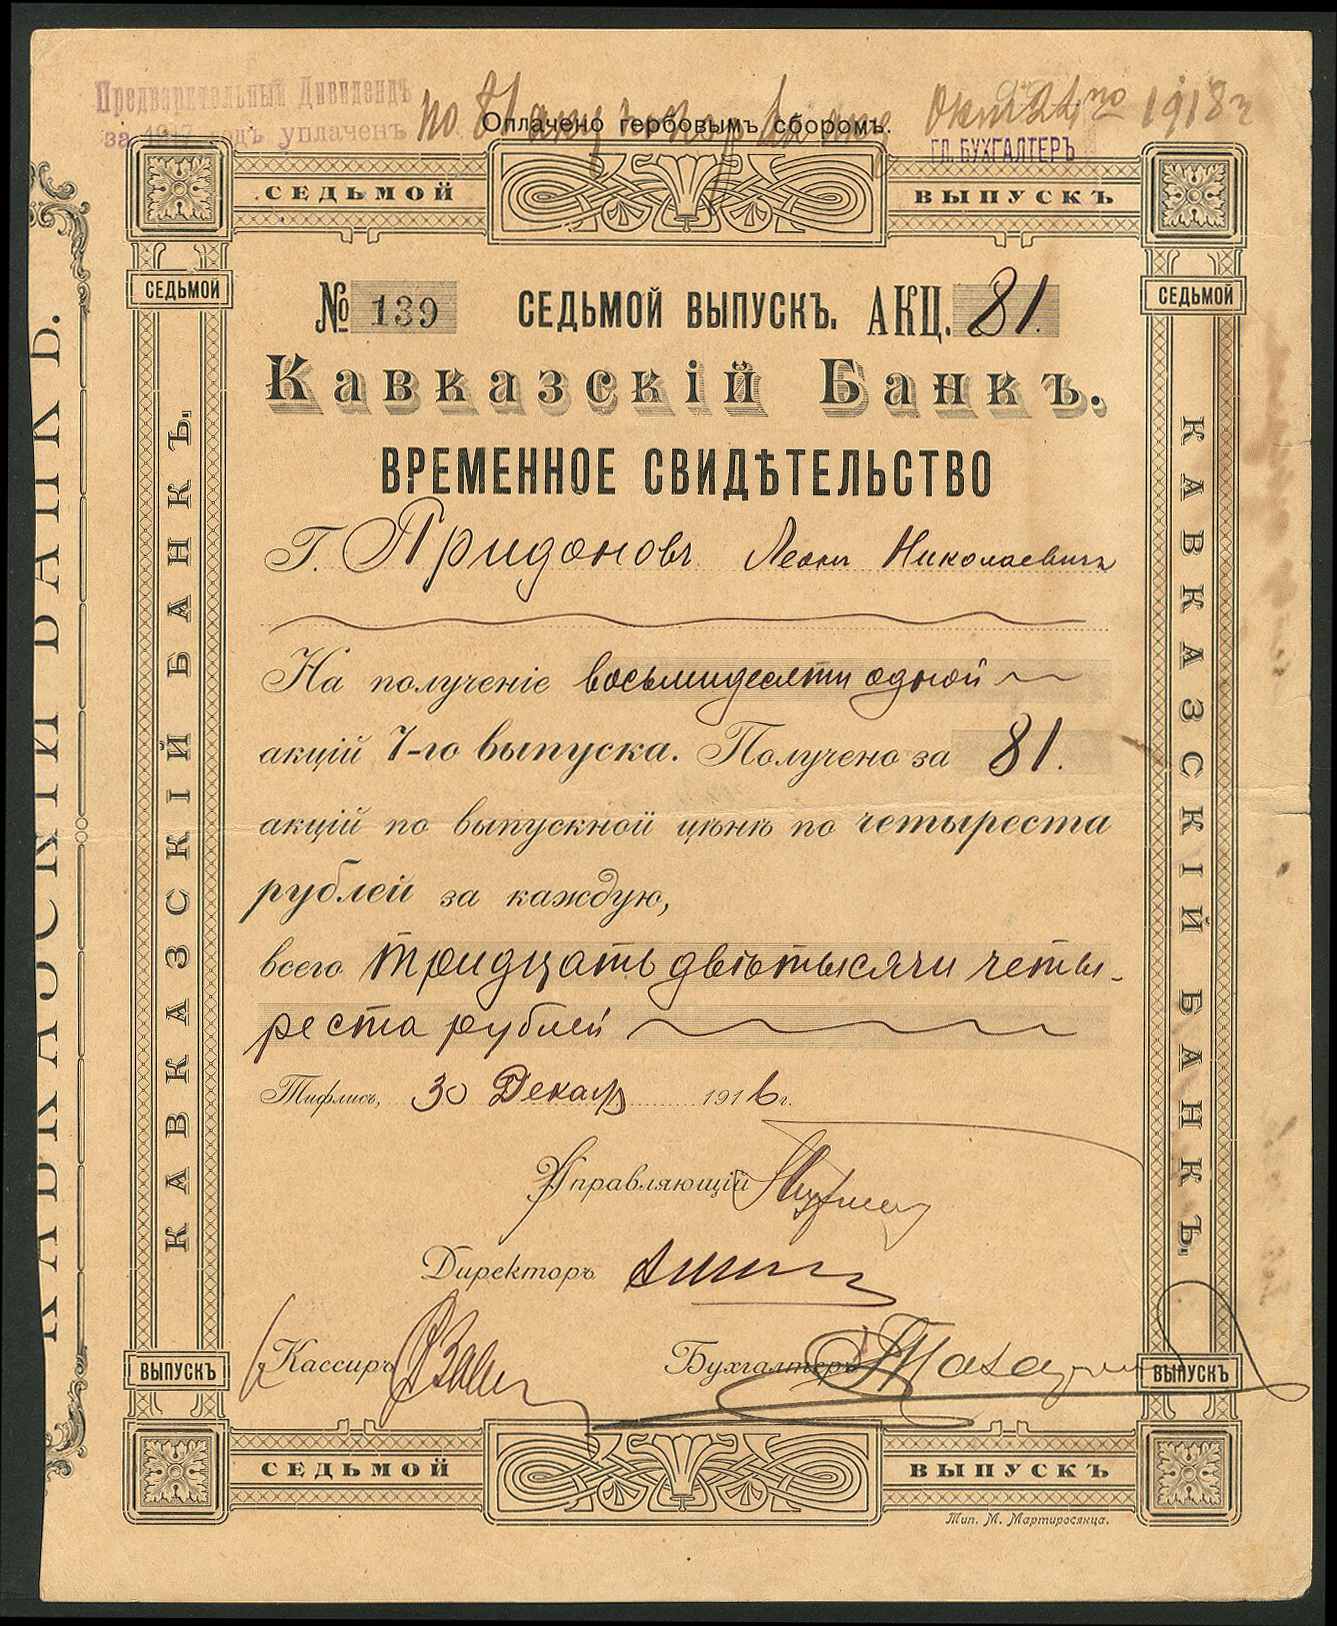 Предварительный Дивидендъ
за 1917 годъ уплаченъ
по
Окт 22 по 1918 г
Оплачено гербовымъ сборомъ.
ГЛ. БУХГАЛТЕРЪ
СЕДЬМОЙ ВЫПУСКЪ
СЕДЬМОЙ СЕДЬМОЙ
№ 139 СЕДЬМОЙ ВЫПУСКЪ. АКЦ. 81.
Кавказскій Банкъ.
ВРЕМЕННОЕ СВИДѢТЕЛЬСТВО
Г. Придоновъ Леонъ Николаевичъ
На полученіе восьмидесяти одной
акцій 7-го выпуска. Получено за 81.
акцій по выпускной цѣнѣ по четыреста
рублей за каждую,
всего тридцать двѣ тысячи четы-
реста рублей
Тифлисъ, 30 Декабр 1916 г.
Управляющій
Директоръ
Кассиръ Бухгалтеръ
ВЫПУСКЪ ВЫПУСКЪ
СЕДЬМОЙ ВЫПУСКЪ
Тип. М. Мартиросянца.
КАВКАЗСКІЙ БАНКЪ.
КАВКАЗСКІЙ БАНКЪ.
КАВКАЗСКІЙ БАНКЪ.